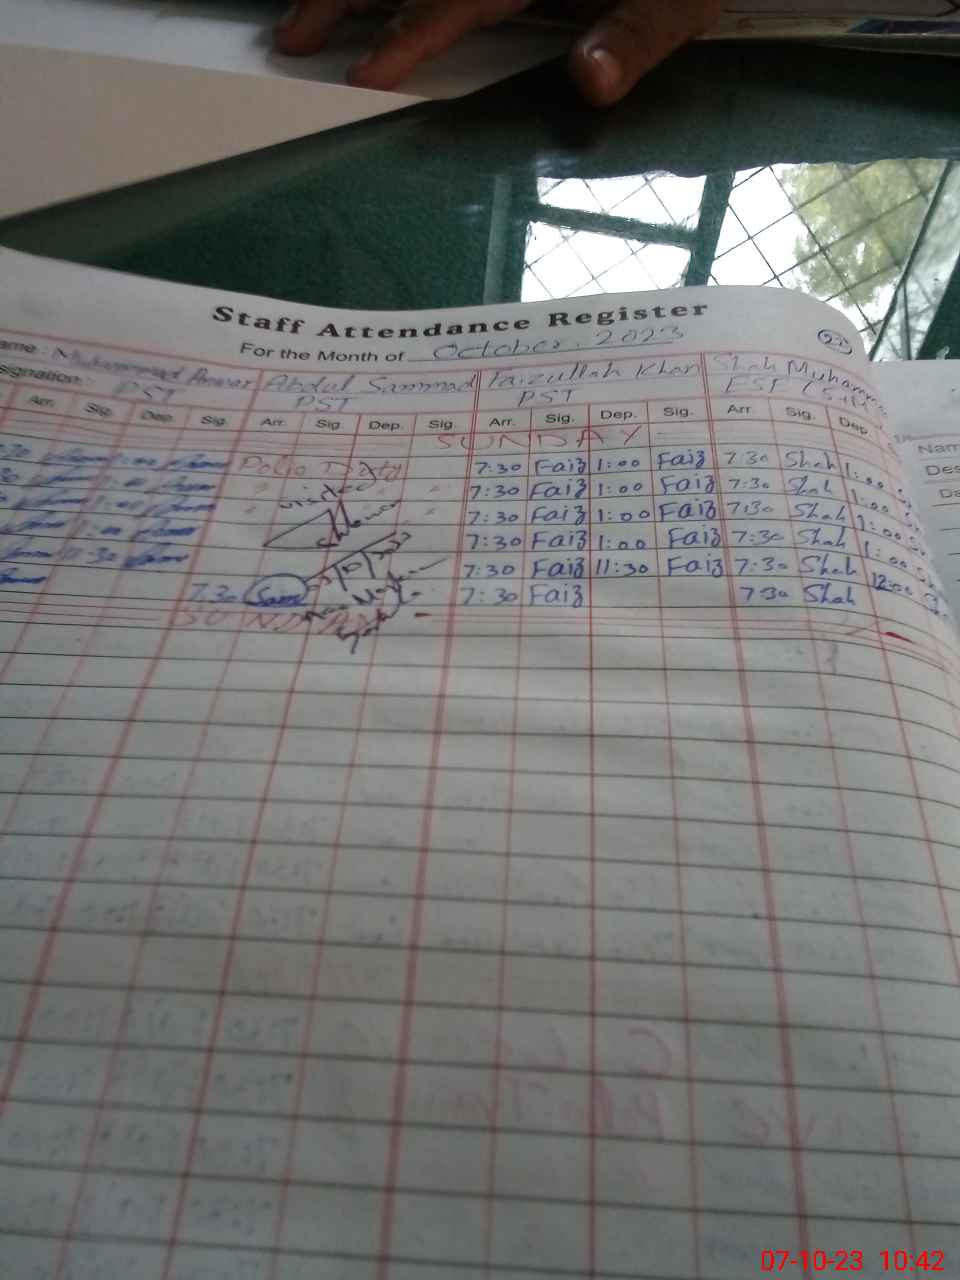 Staff Attendance Register
For the Month of October, 2023
22
Name: Muhammad Anwar Abdul Sammad Faizullah Khan Shah Muhamm
Designation: PST PST PST EST
Arr. Sig. Dep. Sig. Arr. Sig. Dep. Sig. Arr. Sig. Dep. Sig. Arr. Sig. Dep.
SUNDAY
Polio Duty 7:30 Faiz 1:00 Faiz 7:30 Shah 1:00
1:00 visited 7:30 Faiz 1:00 Faiz 7:30 Shah 1:00
1:00 7:30 Faiz 1:00 Faiz 7:30 Shah 1:00
1:00 7:30 Faiz 1:00 Faiz 7:30 Shah 1:00
11:30 7:30 Faiz 11:30 Faiz 7:30 Shah 12:00
7:30 Sam 7:30 Faiz 7:30 Shah
SUNDAY
Nam
Des
Da
07-10-23 10:42